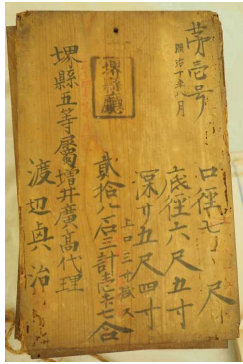 第壱号
明治十年八月
口径七尺
底径六尺五寸
深サ五尺四寸
上口三寸
貳拾 石三計 七合
堺縣廳
堺縣五等属増井廣高代理
渡辺眞治